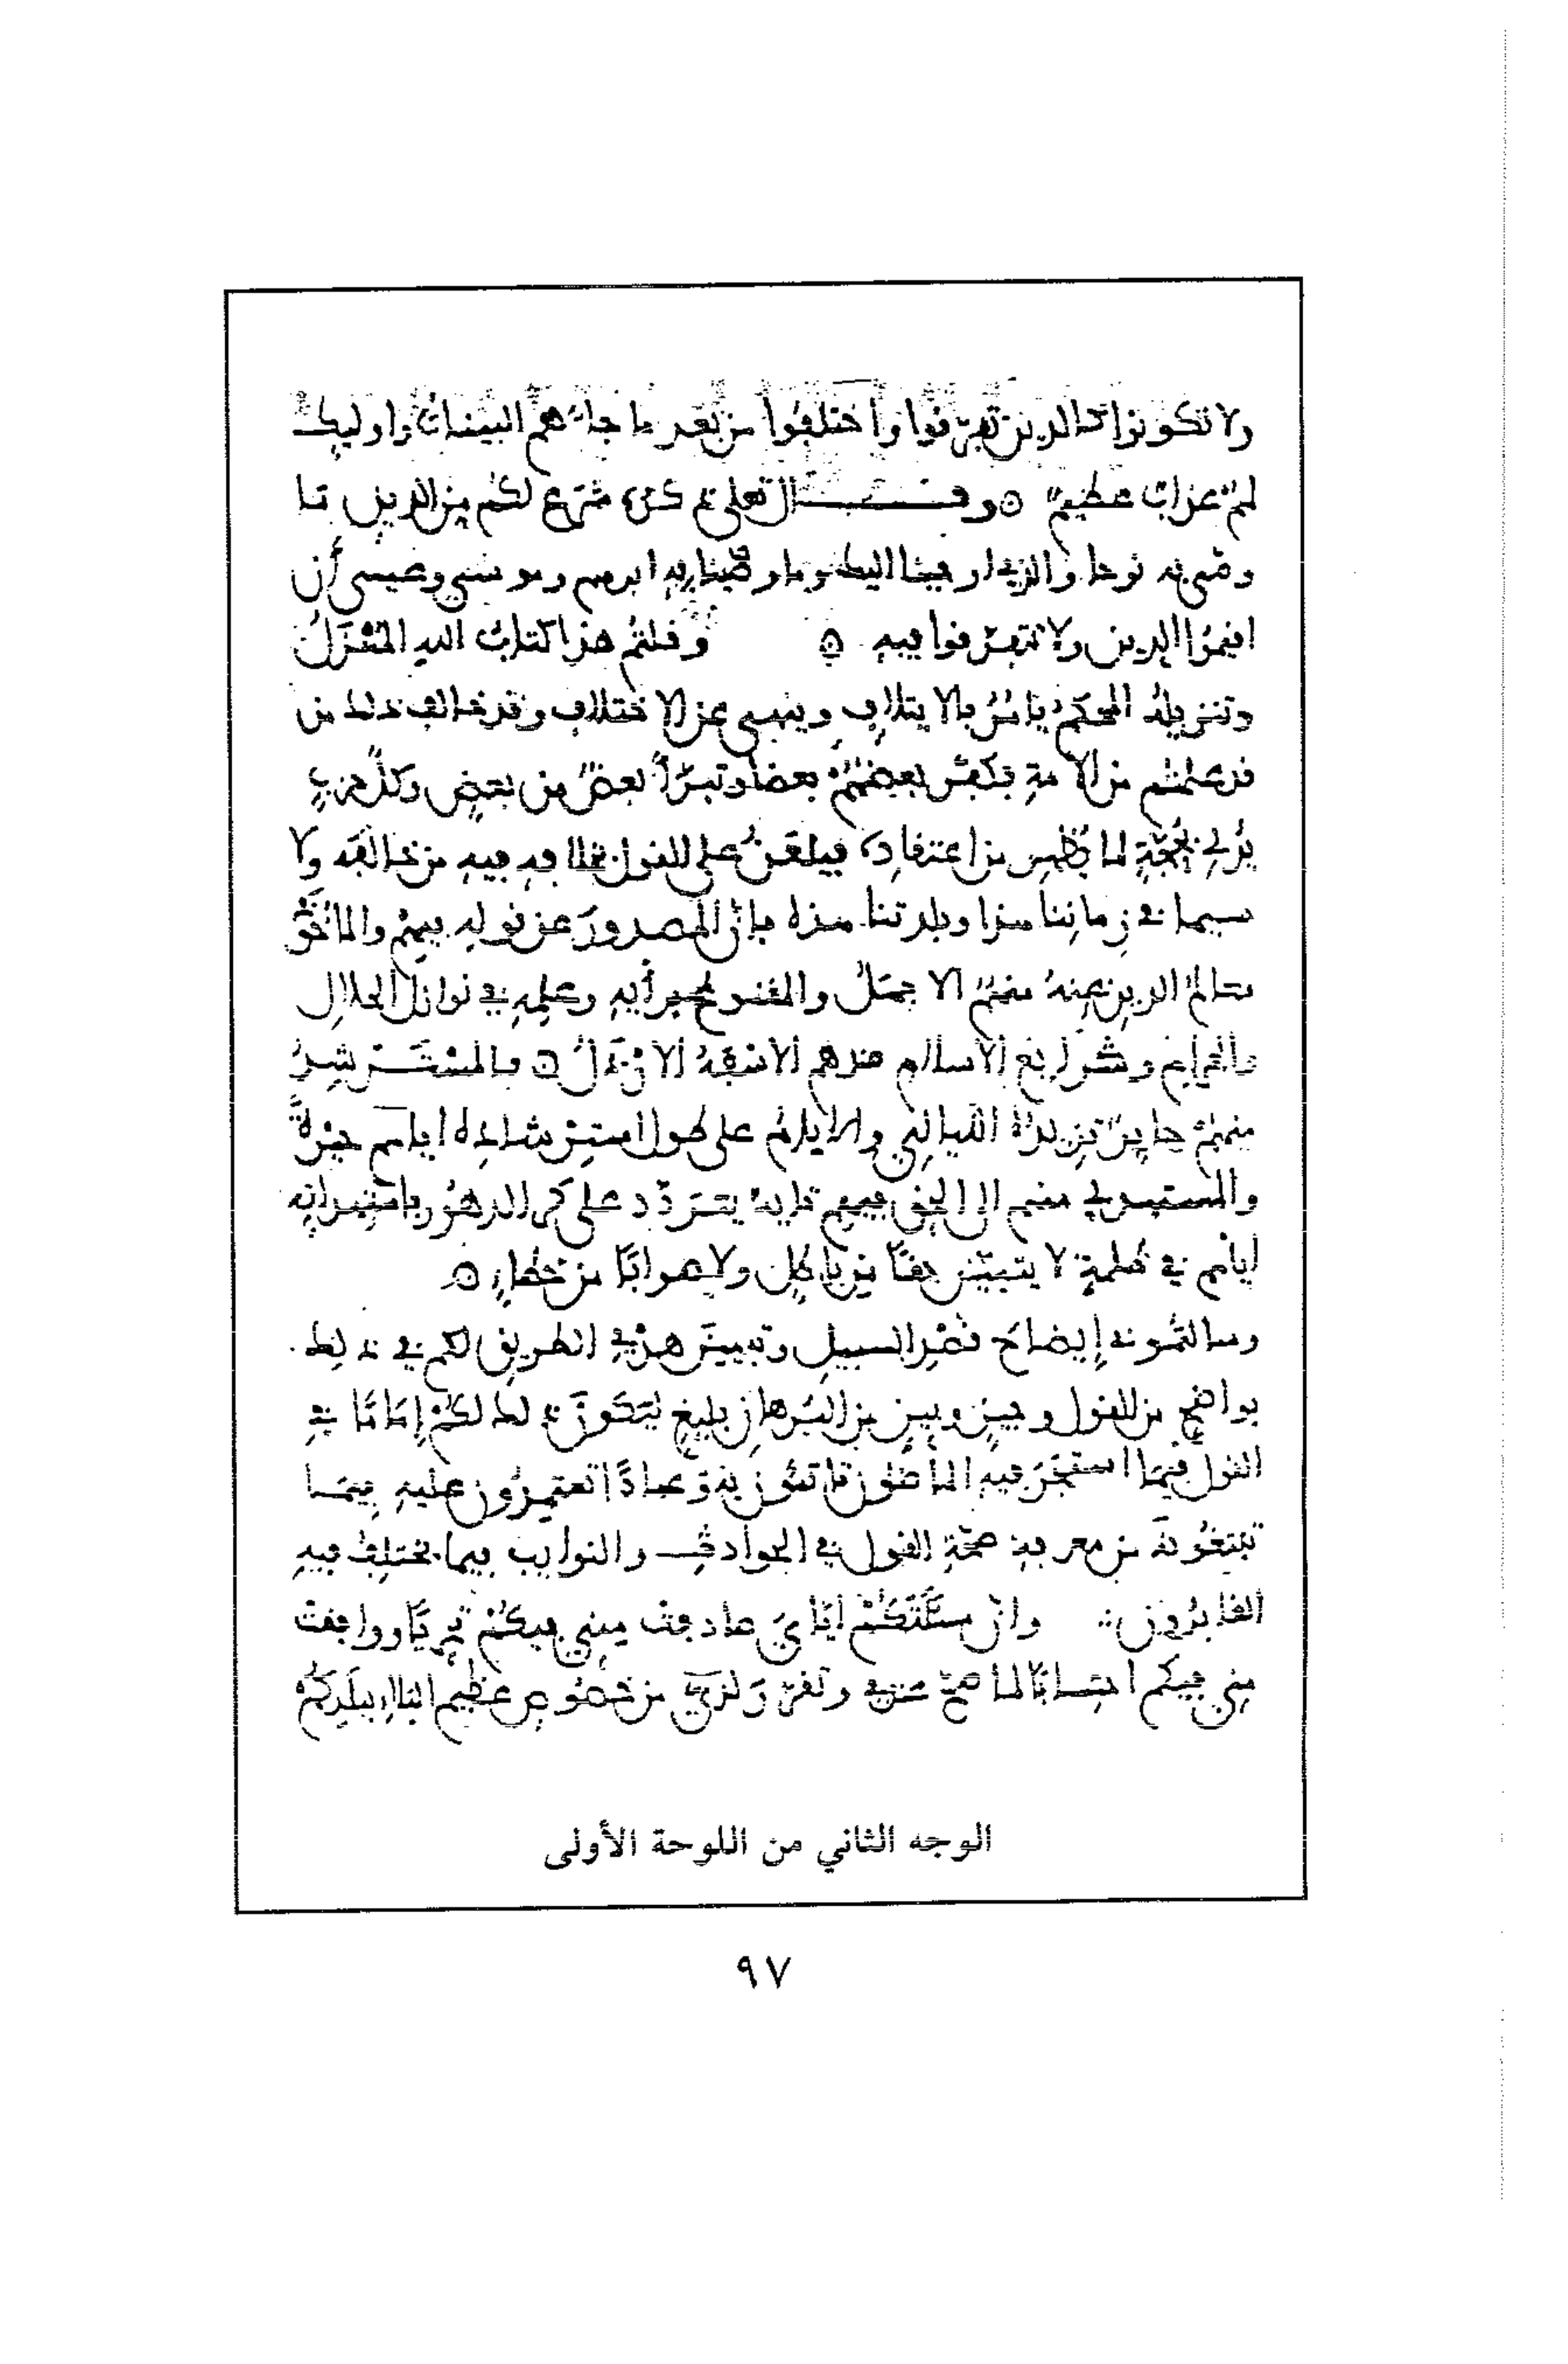 ولا تكونوا كالذين تفرقوا واختلفوا من بعد ما جاءهم البينات واوليك
لهم عذاب عظيم ۞ وقــــــال تعلى ذكره شرع لكم من الدين ما
وصى به نوحا والذي اوحينا اليك وما وصينا به ابرهيم وموسى وعيسى أن
اقيموا الدين ولا تتفرقوا فيه ۞ وقلتم هذا كتاب الله المنزل
وتنزيله المحكم يأمر بالايتلاف وينهى عن الاختلاف وقد خالف ذلك من
قد علمتم من الأمة فكفر بعضهم بعضا وتبرأ بعض من بعض وكل حزب
يدلي بحجة لما من اعتقاده فيلعن على القول فيه من خالفه ولا
سيما في زماننا هذا وبلدتنا هذه فإن المصدور عن قوله فيهم والماخوذ
معالم الدين عنه منهم الاجهل والمقنوع برأيه وعلمه في نوازل الحلال
والحرام وشرايع الاسلام عندهم الاسفه الارذل ۞ فالمسترشد
منهم حاير تزيده الليالي والايام على طول استرشاده اياهم حيرة
والمستهدي منهم الى الحق فيهم تايه يتردد على كر الدهور باستهدايه
اياهم في ظلمة لا يتبين حقا من باطل ولا صوابا من خطاء ۞
وسالتموني إيضاح قصد السبيل وتبيين هدي الطريق لكم في ذلك
بواضح من القول وجيز وبين من البرهان بليغ ليكون ذلك لكم إماما في
القول فيما استجر فيه الماضون تاتمون به وعمادا تعتمدون عليه فيما
تبتغونه من معرفة صحة القول في الحوادث والنوايب فيما يختلف فيه
الغابرون وان مسئلتكم اياي صادفت مني فيكم تحريا ووافقت
مني فيكم احتسابا لما صح عندي وتقرر لدي من خصوص عظيم البلاء ببلدكم
الوجه الثاني من اللوحة الأولى
٩٧